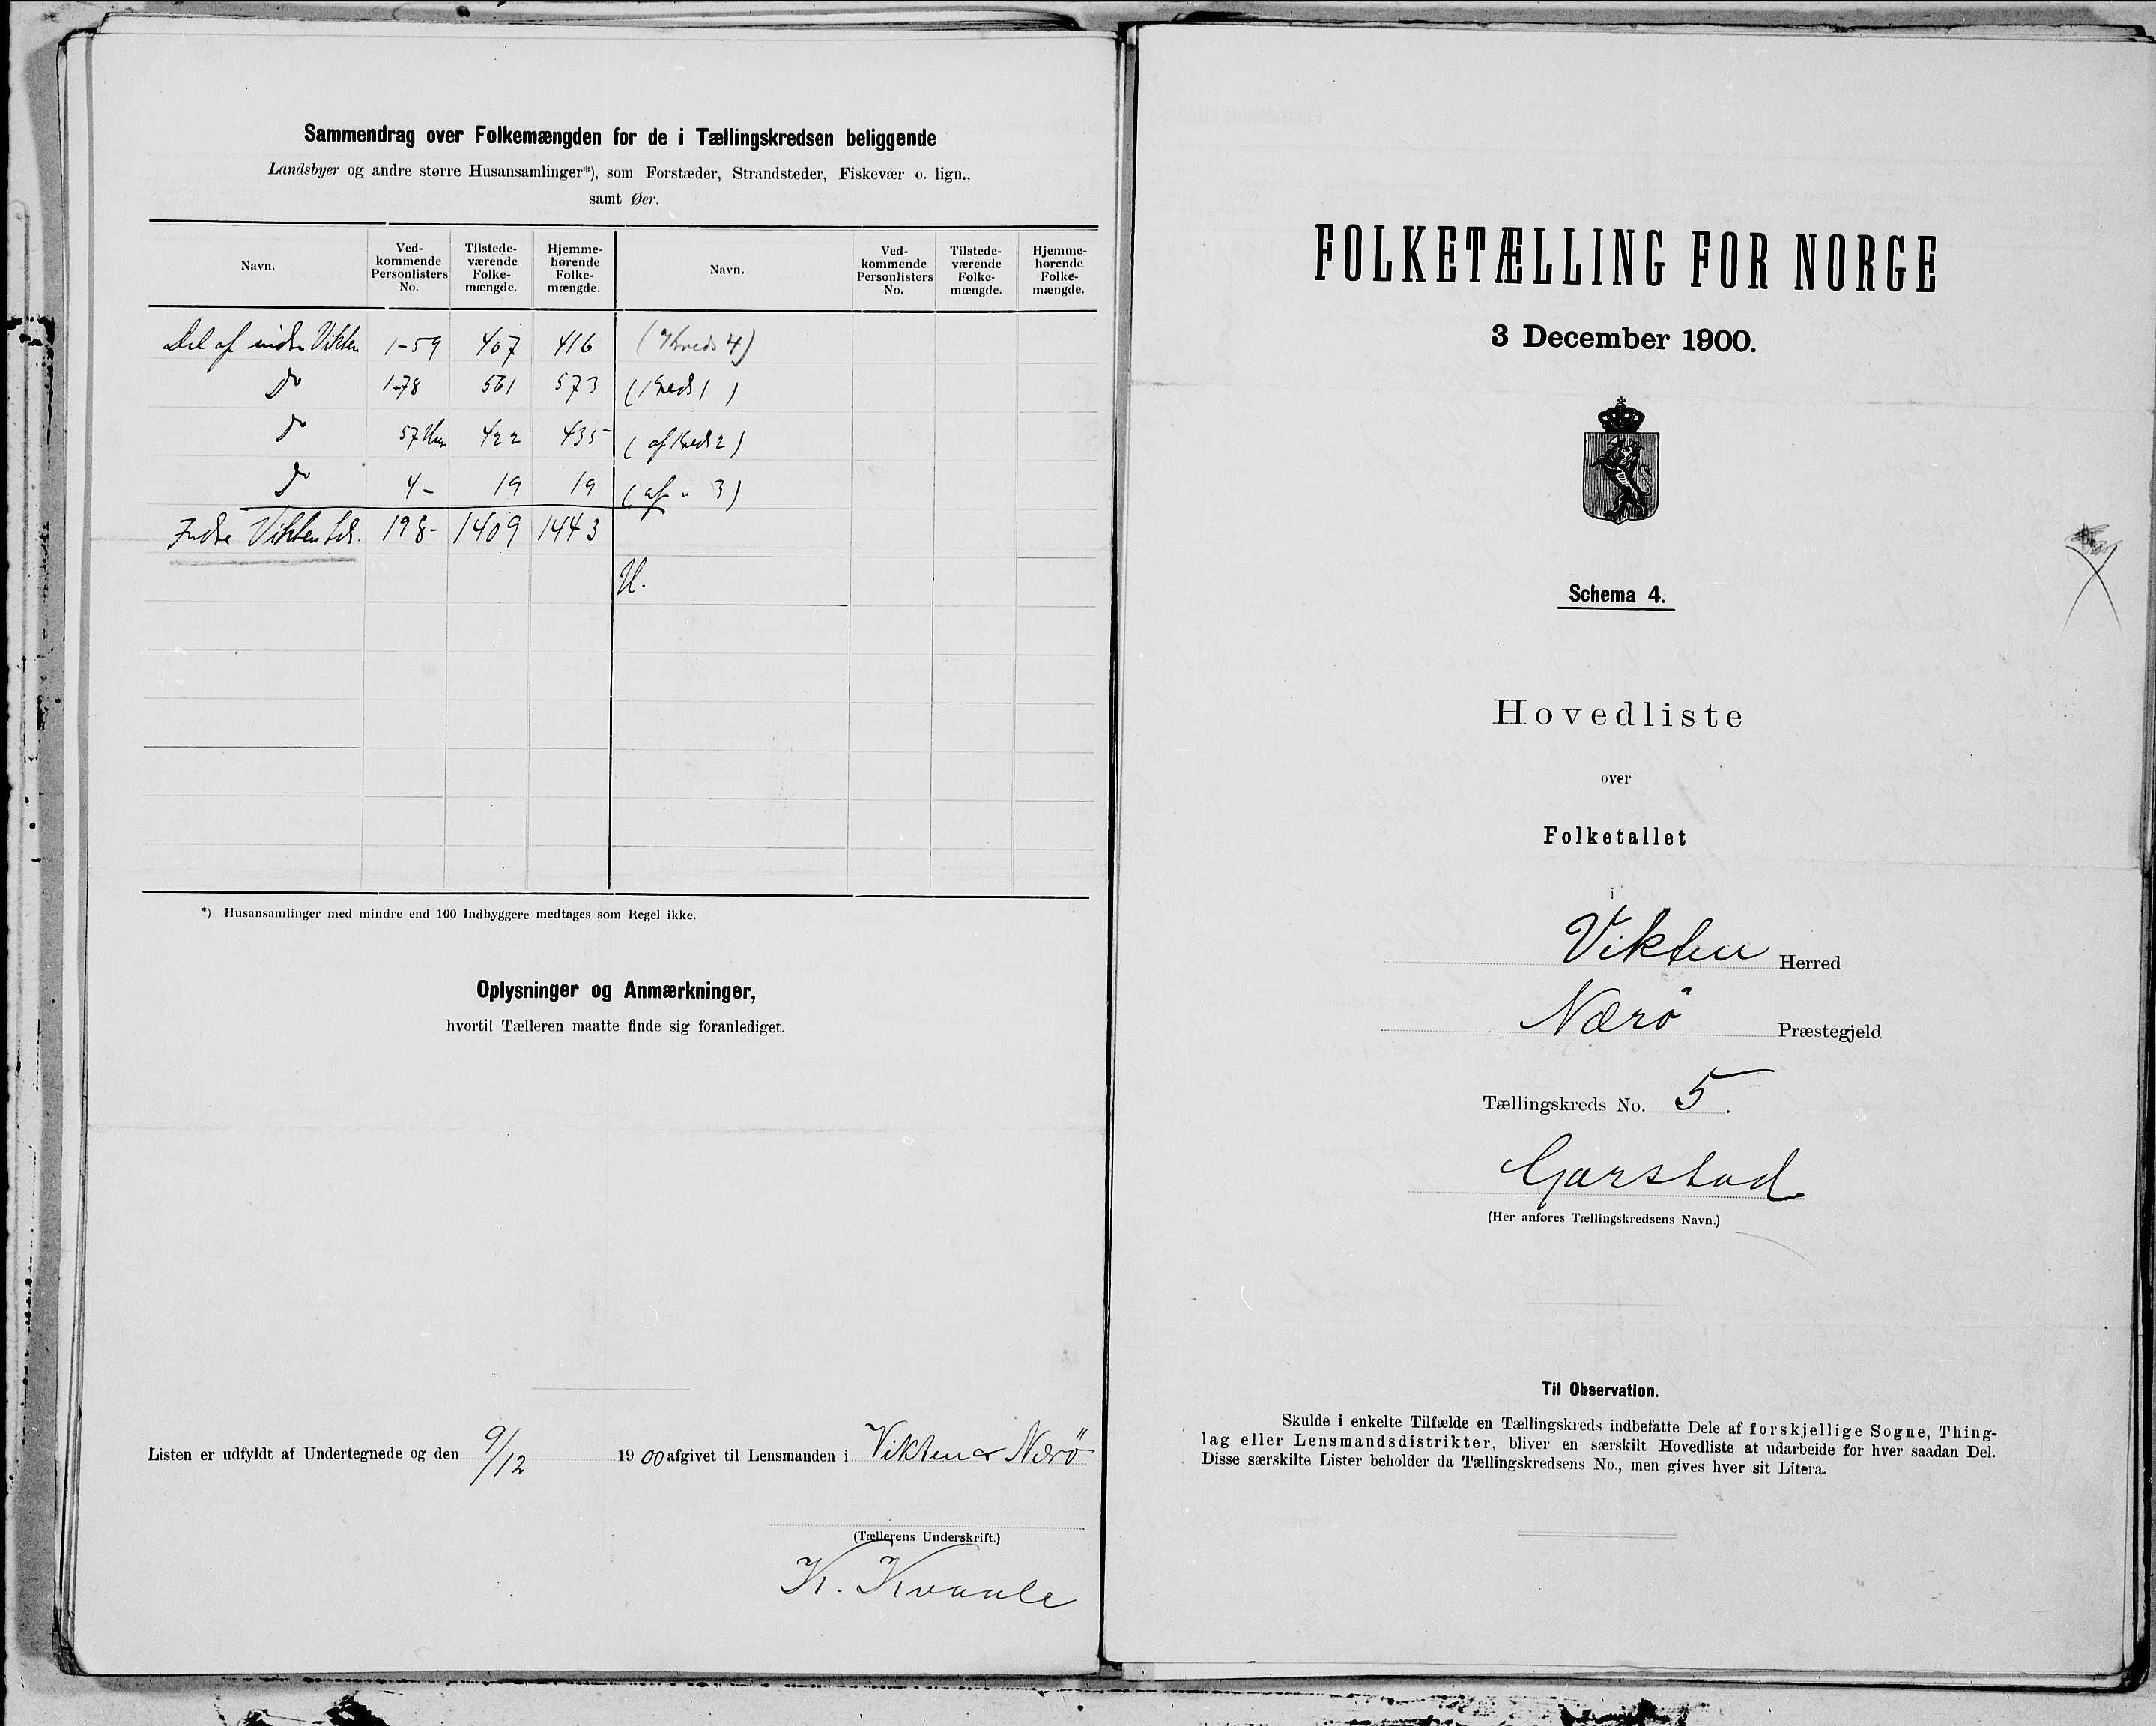 Sammendrag over Folkemængden for de i Tællingskredsen beliggende
Landsbyer og andre større Husansamlinger*), som Forstæder, Strandsteder, Fiskevær o. lign.,
samt Øer.
Navn. Ved-kommende Personlisters No. Tilstede-værende Folke-mængde. Hjemme-hørende Folke-mængde. Navn. Ved-kommende Personlisters No. Tilstede-værende Folke-mængde. Hjemme-hørende Folke-mængde.
Del af indre Vikten 1-59 407 416 (Kreds 4)
Do 1-78 561 573 (Kreds 1)
Do 57 422 435 (af Kreds 2)
Do 4- 19 19 (af " 3)
Indre Vikten 198- 1409 1443
U.
*) Husansamlinger med mindre end 100 Indbyggere medtages som Regel ikke.
Oplysninger og Anmærkninger,
hvortil Tælleren maatte finde sig foranlediget.
Listen er udfyldt af Undertegnede og den 9/12 1900 afgivet til Lensmanden i Vikten & Nærö
(Tællerens Underskrift.)
K. Kvaale
FOLKETÆLLING FOR NORGE
3 December 1900.
Schema 4.
Hovedliste
over
Folketallet
i
Vikten Herred
Nærö Præstegjeld
Tællingskreds No. 5.
Garstad
(Her anføres Tællingskredsens Navn.)
Til Observation.
Skulde i enkelte Tilfælde en Tællingskreds indbefatte Dele af forskjellige Sogne, Thing-
lag eller Lensmandsdistrikter, bliver en særskilt Hovedliste at udarbeide for hver saadan Del.
Disse særskilte Lister beholder da Tællingskredsens No., men gives hver sit Litera.